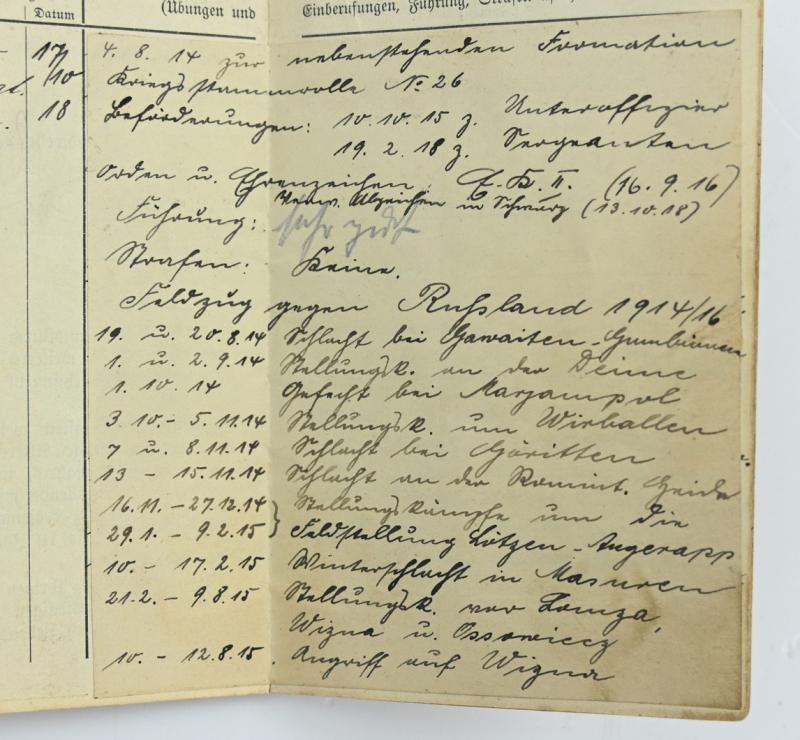 Datum
(Übungen und
Einberufungen, Führung, Strafen
17/10
18
4. 8. 14 zur nebenstehenden Formation
Kriegsstammrolle No 26
Beförderungen: 10. 10. 15 z. Unteroffizier
19. 2. 18 z. Sergeanten
Orden u. Ehrenzeichen: E. K. II. (16. 9. 16)
Verw. Abzeichen in Schwarz (13. 10. 18)
Führung: sehr gut
Strafen: Keine.
Feldzug gegen Rußland 1914/16
19. u. 20. 8. 14 Schlacht bei Gawaiten-Gumbinnen
1. u. 2. 9. 14 Stellungsk. an der Deime
1. 10. 14 Gefecht bei Marjampol
3. 10. - 5. 11. 14 Stellungsk. um Wirballen
7. u. 8. 11. 14 Schlacht bei Göritten
13 - 15. 11. 14 Schlacht an der Romint. Heide
16. 11. - 27. 12. 14 } Stellungskämpfe um die
29. 1. - 9. 2. 15 } Feldstellung Lötzen-Angerapp
10. - 17. 2. 15 Winterschlacht in Masuren
21. 2. - 9. 8. 15 Stellungsk. vor Lomza,
Wizna u. Ossowiecz
10. - 12. 8. 15. Angriff auf Wizna